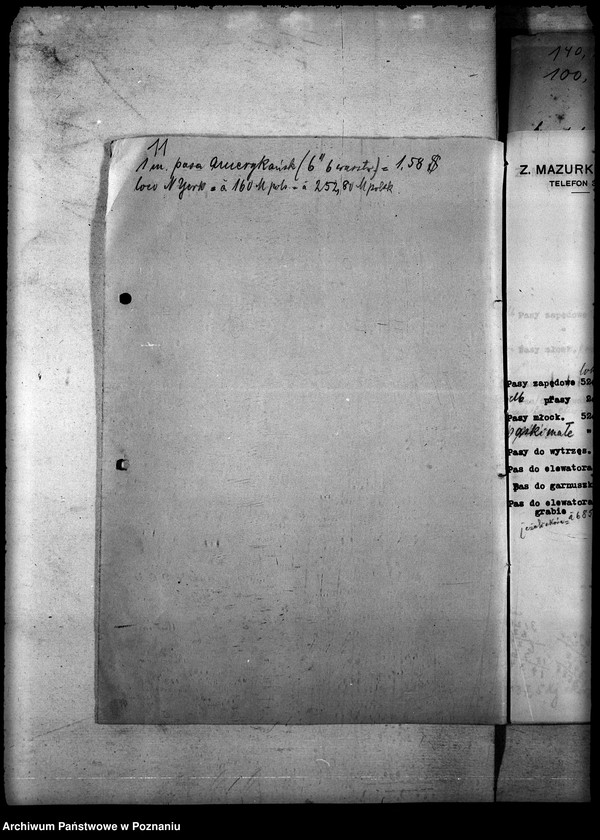 11
1 m. pasa Amerykańsk (6" 6 warstw) = 1,58 $
loco N York = à 160 M pols = à 252,80 M polsk
140,
100,
Z. MAZURK
TELEFON
Pasy zapędowe
Pasy zapędowe 52
pasy 2
Pasy młock. 52
małe "
Pasy do wytrzęs.
Pas do elewatora
Pas do garnuszk
Pas do elewatora
grabie
à 685
Archiwum Państwowe w Poznaniu